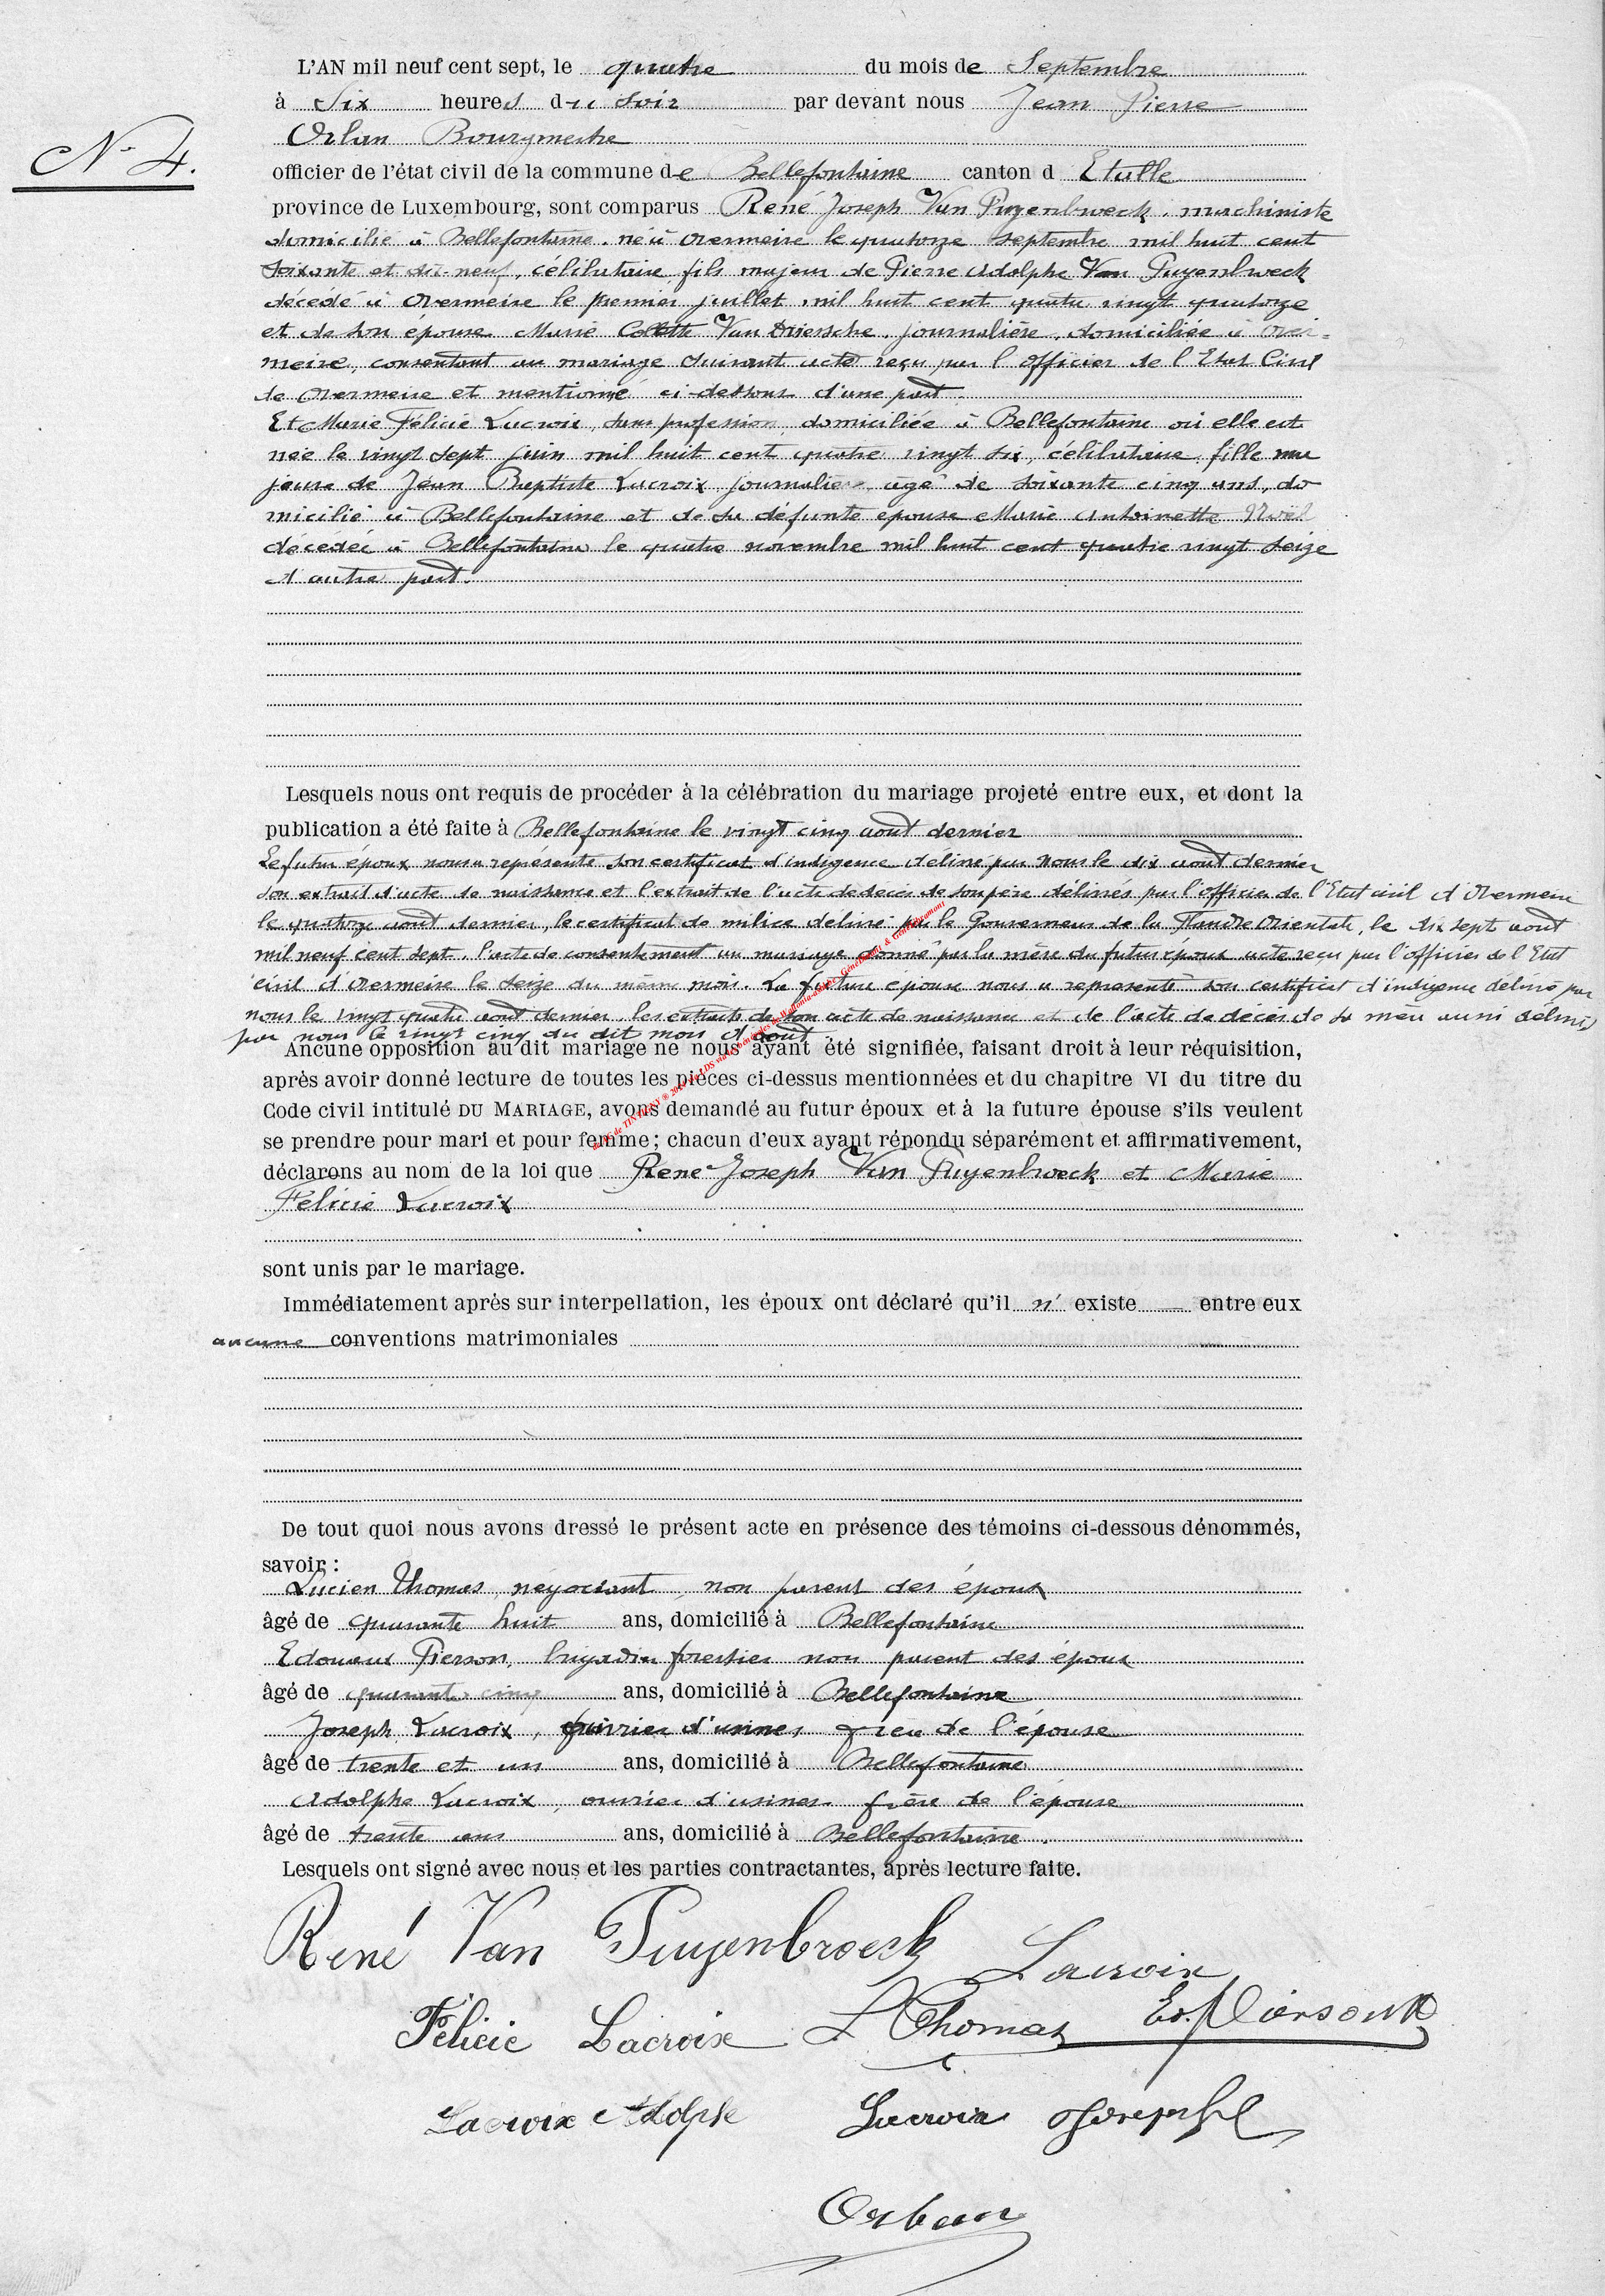 L'AN mil neuf cent sept, le quatre du mois de Septembre
à Six heures du soir par devant nous Jean Pierre
Orban Bourgmestre
N° 4.
officier de l'état civil de la commune de Bellefontaine canton d Etalle
province de Luxembourg, sont comparus René Joseph Van Puyenbroeck, machiniste
domicilié à Bellefontaine, né à Overmeire le quatorze septembre mil huit cent
soixante et dix-neuf, célibataire, fils majeur de Pierre Adolphe Van Puyenbroeck
décédé à Overmeire le premier juillet mil huit cent quatre vingt quatorze
et de son épouse Marie Colette Van Driessche, journalière, domiciliée à Over=
meire, consentant au mariage suivant acte reçu par l'officier de l'Etat Civil
de Overmeire et mentionné ci-dessous d'une part.
Et Marie Félicie Lacroix, sans profession domiciliée à Bellefontaine où elle est
née le vingt sept juin mil huit cent quatre vingt six, célibataire, fille ma
jeure de Jean Baptiste Lacroix journalier âgé de soixante cinq ans, do
micilié à Bellefontaine et de sa défunte épouse Marie Antoinette Noël
décédée à Bellefontaine le quatre novembre mil huit cent quatre vingt seize
d'autre part.
Lesquels nous ont requis de procéder à la célébration du mariage projeté entre eux, et dont la
publication a été faite à Bellefontaine le vingt cinq août dernier
Le futur époux nous a représenté son certificat d'indigence délivré par Nous le dix août dernier
son extrait d'acte de naissance et l'extrait de l'acte de décès de son père délivrés par l'officier de l'Etat civil d'Overmeire
le quatorze août dernier, le certificat de milice délivré par le Gouverneur de la Flandre Orientale, le dix sept août
mil neuf cent sept, l'acte de consentement au mariage donné par la mère du futur époux acte reçu par l'officier de l'Etat
civil d'Overmeire le seize du même mois. La future épouse nous a représenté son certificat d'indigence délivré par
nous le vingt quatre août dernier, les extraits de son acte de naissance et de l'acte de décès de sa mère aussi délivrés
par nous le vingt cinq du dit mois d'août.
Aucune opposition au dit mariage ne nous ayant été signifiée, faisant droit à leur réquisition,
après avoir donné lecture de toutes les pièces ci-dessus mentionnées et du chapitre VI du titre du
Code civil intitulé DU MARIAGE, avons demandé au futur époux et à la future épouse s'ils veulent
se prendre pour mari et pour femme; chacun d'eux ayant répondu séparément et affirmativement,
déclarons au nom de la loi que René Joseph Van Puyenbroeck et Marie
Félicie Lacroix
sont unis par le mariage.
Immédiatement après sur interpellation, les époux ont déclaré qu'il n' existe entre eux
aucune conventions matrimoniales
De tout quoi nous avons dressé le présent acte en présence des témoins ci-dessous dénommés,
savoir :
Lucien Thomas, négociant, non parent des époux
âgé de quarante huit ans, domicilié à Bellefontaine
Edouard Pierson, brigadier forestier non parent des époux
âgé de quarante cinq ans, domicilié à Bellefontaine
Joseph Lacroix, ouvrier d'usines, frère de l'épouse
âgé de trente et un ans, domicilié à Bellefontaine
Adolphe Lacroix, ouvrier d'usines frère de l'épouse
âgé de trente ans ans, domicilié à Bellefontaine.
Lesquels ont signé avec nous et les parties contractantes, après lecture faite.
René Van Puyenbroeck Lacroix
Félicie Lacroix L Thomas Ed. Pierson
Lacroix Adolphe Lacroix Joseph
Orban